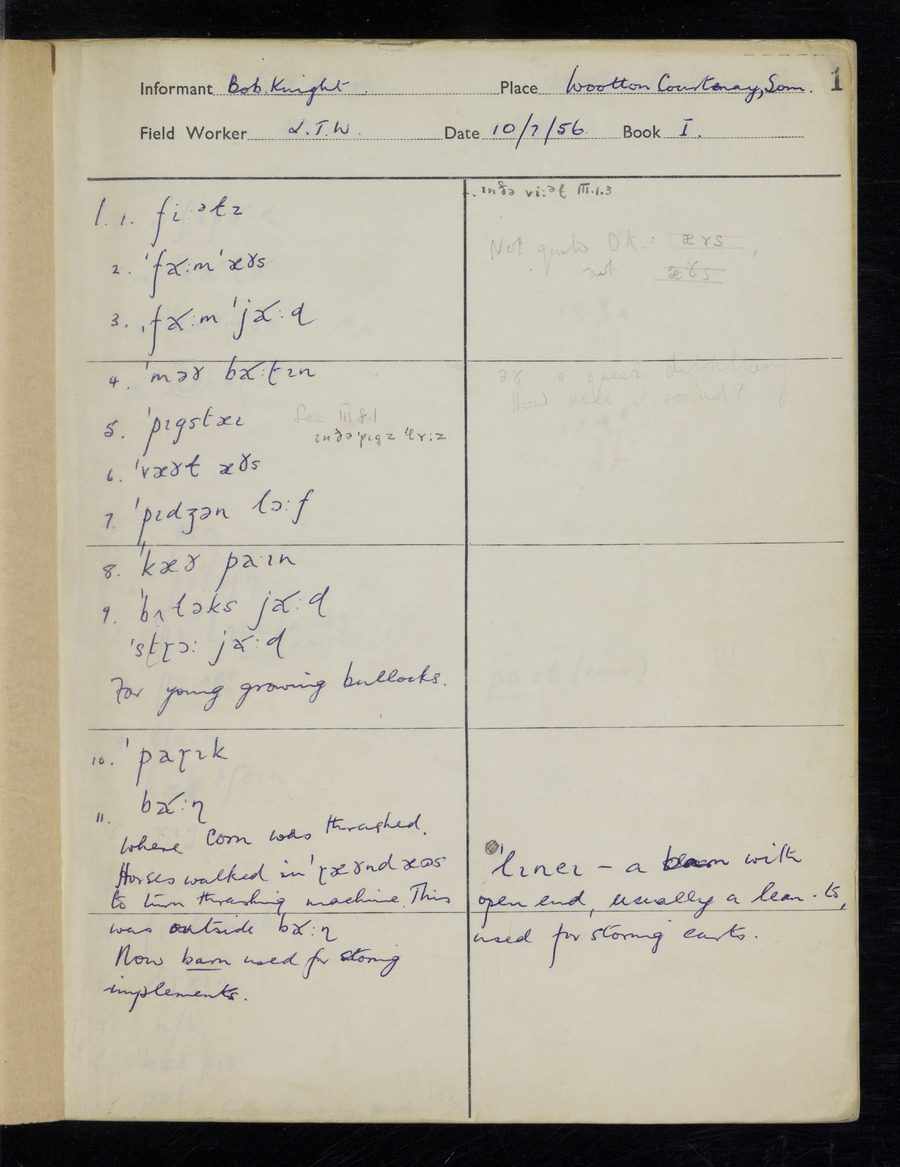 1
Informant Bob Knight. Place Wootton Courtenay, Som.
Field Worker L.T.W. Date 10/7/56 Book I.
I. 1. fiːəɫz
2. ˈfɑ̈ːmˈæɤs
3. ˌfɑ̈ːmˈjɑ̈ːɖ
4. ˈməɤ bɑ̈ːʈɪn
5. ˈpɪgstæɪ
See III.8.1
ɪnðəˈpɪgz
6. ˈvæɤɫ æɤs
7. ˈpɪdʒən lɔːf
8. ˈkæɤ paːɪn
9. ˈbʌləks jɑ̈ːɖ
ˈstɽɔː jɑ̈ːɖ
For young growing bullocks.
10. ˈpaɽɪk
11. bɑ̈ːɳ
Where Corn was thrashed.
Horses walked in ˈɽæɤnd æɷs
to turn thrashing machine. This
was outside bɑ̈ːɳ
Now barn used for storing
implements.
ɪnðə viːəɫ III.1.3
Not quite O.K.: æɤs,
not æɤs
əɤ - a queer diphthong
How does it sound?
ˈlɪneɪ – a barn with
open end, usually a lean-to,
used for storing carts.